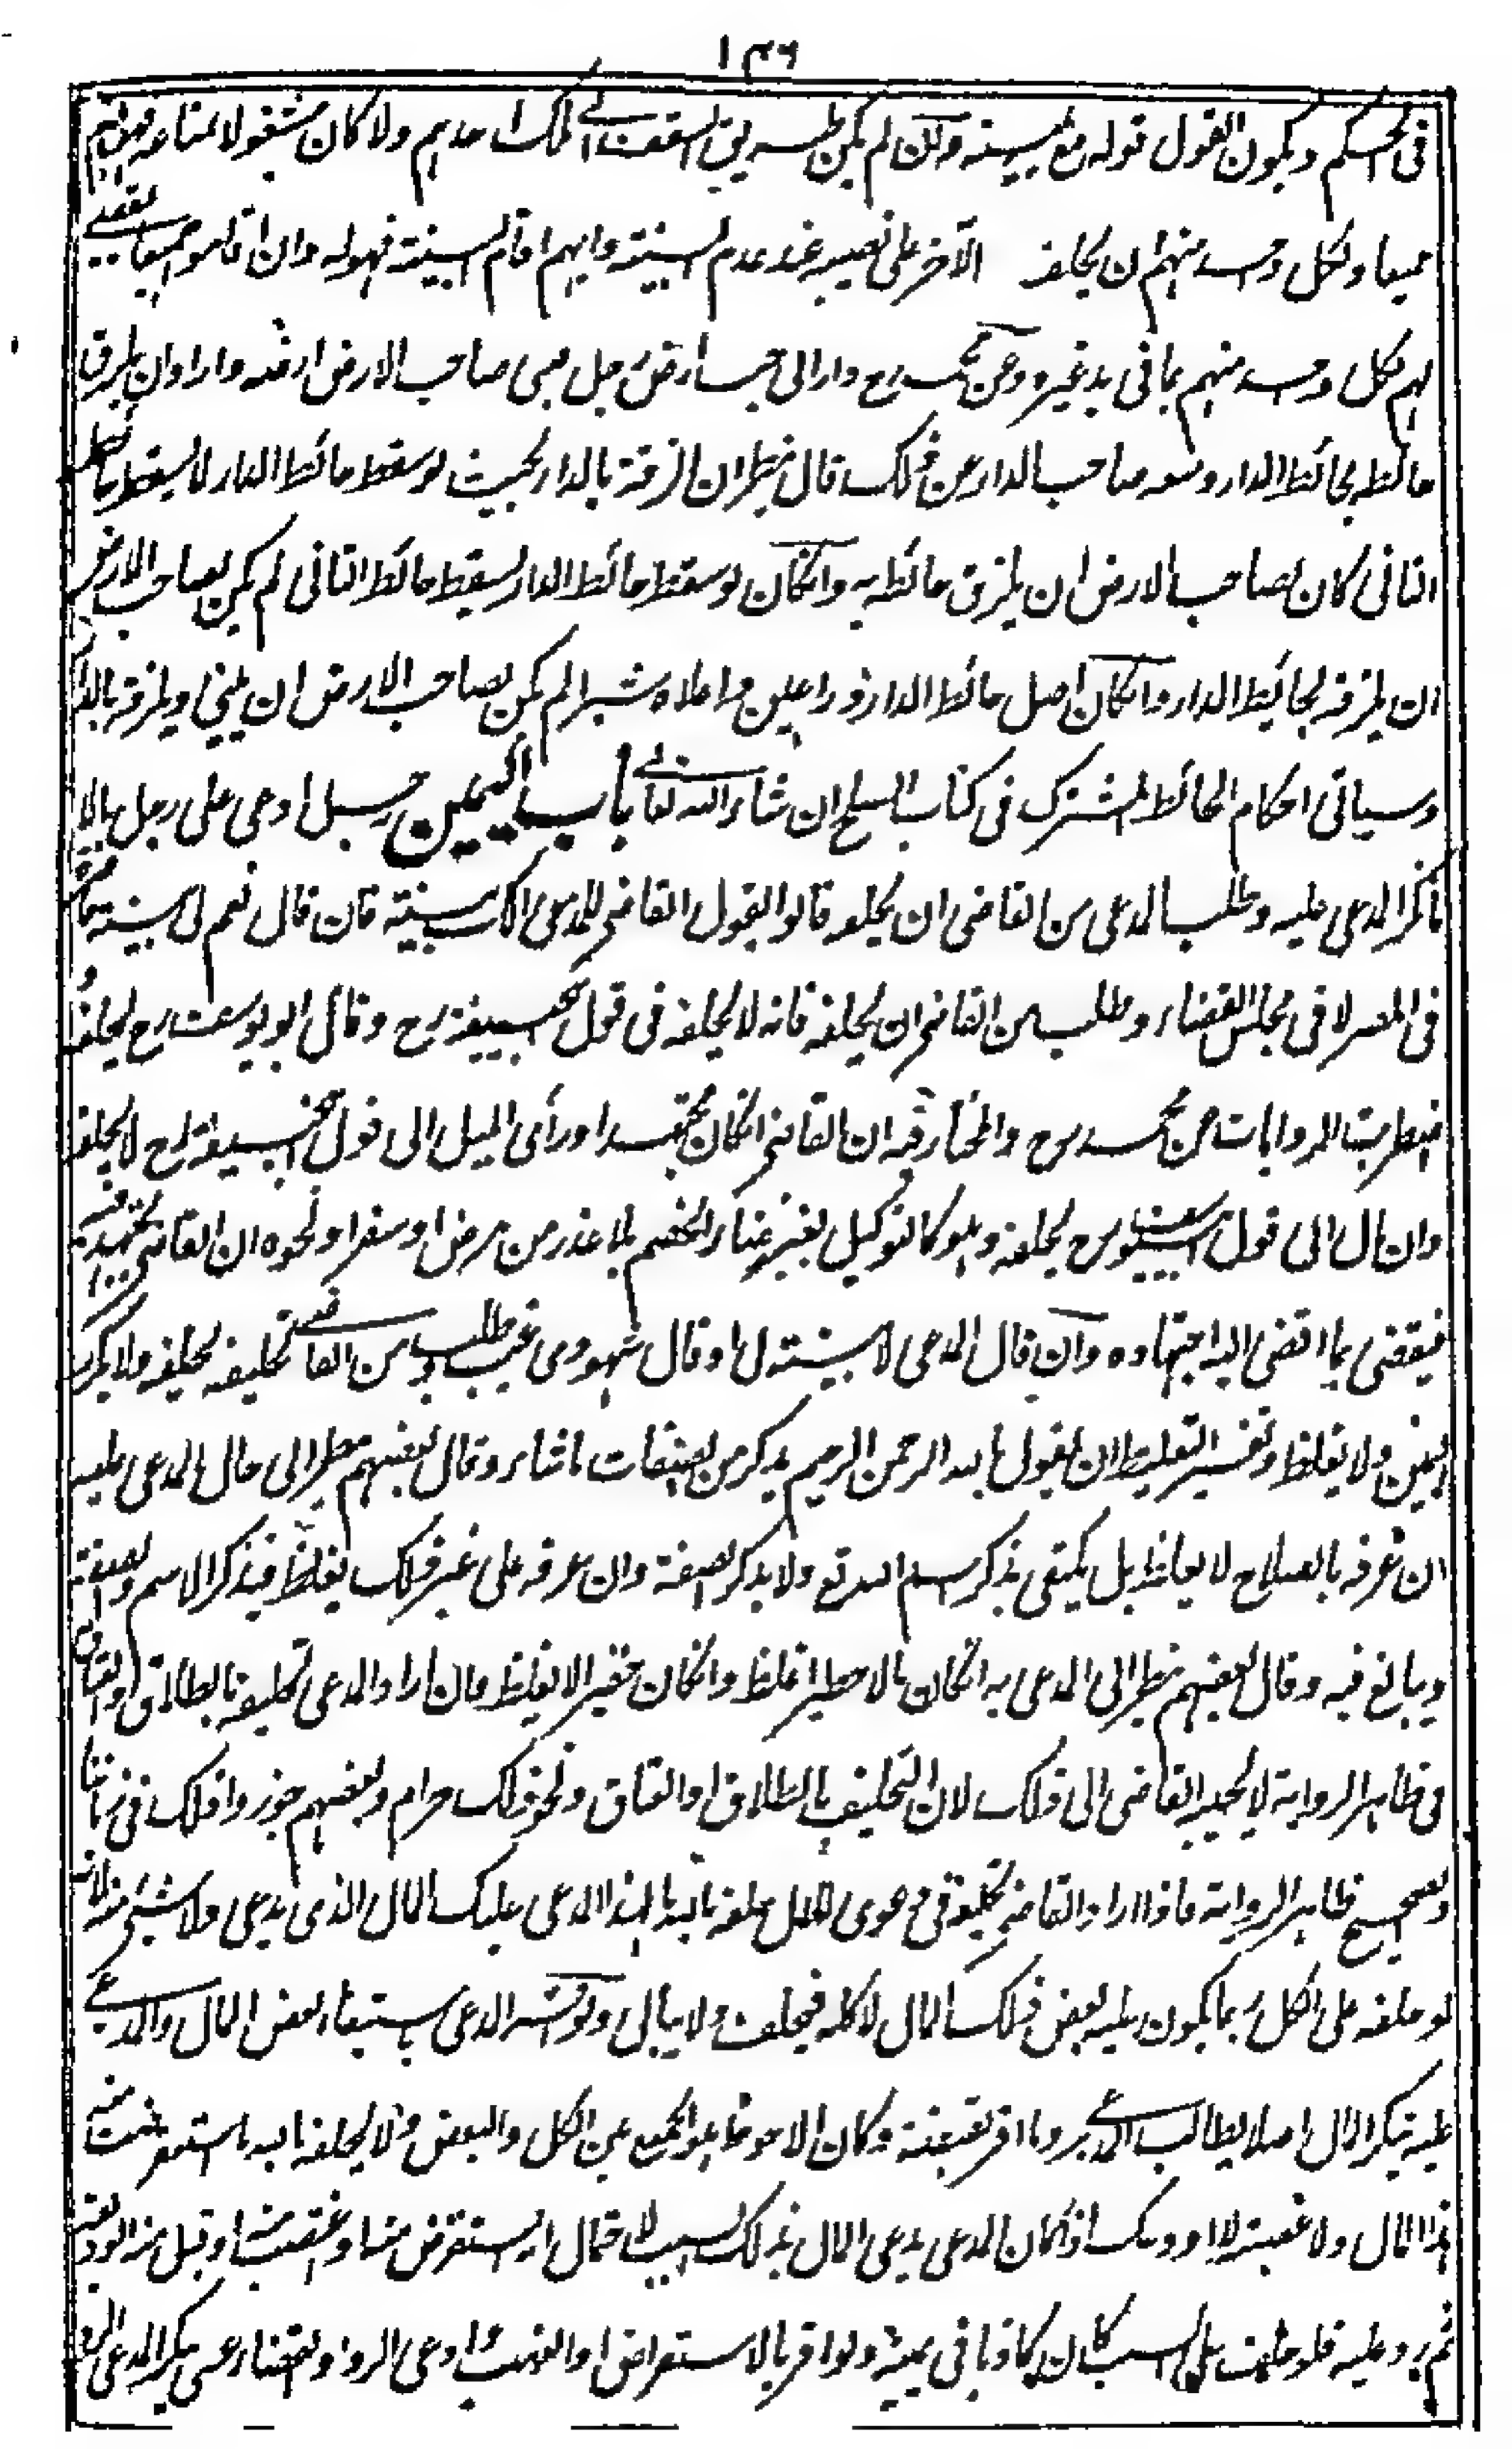 ١٣٦
في الحكم ويكون القول قوله مع يمينه وان لم يكن طريق السقف الى ملك احدهم ولا كان مشغولا بمتاعه فهو لهم
جميعا ولكل واحد منهم ان يحلف الآخر على نصيبه عند عدم البينة وايهم اقام البينة فهو له وان اقاموا جميعا يقضى
لهم لكل واحد منهم بما في يد غيره وعن محمد رح دار الى جنب ارض رجل بنى صاحب الارض ارضه دارا واراد ان يلزق
حائطه بحائط الدار ومنعه صاحب الدار عن ذلك قال ينظر ان الزقه بالدار بحيث لو سقط حائط الدار لا يسقط حائط
الثاني كان لصاحب الارض ان يلزق حائطه به وانكان لو سقط حائط الدار يسقط حائط الثاني لم يكن لصاحب الارض
ان يلزقه بحائط الدار وانكان اصل حائط الدار ذراعين واعلاه شبرا لم يكن لصاحب الارض ان يبني ويلزقه بالدار
وسياتي احكام الحائط المشترك في كتاب الصلح ان شاء الله تعالى باب اليمين رجل ادعى على رجل مالا
فانكر المدعى عليه وطلب المدعي من القاضي ان يحلفه قالوا يقول القاضي للمدعي الك بينة فان قال نعم لي بينة حاضرة
في المصر لا في مجلس القضاء وطلب من القاضي ان يحلفه فانه لا يحلفه في قول ابي حنيفة رح وقال ابو يوسف رح يحلفه و
اضطربت الروايات عن محمد رح والمختار فيه ان القاضي انكان مجتهدا ورأى الميل الى قول ابي حنيفة رح لا يحلفه
وان مال الى قول ابي يوسف رح يحلفه وهو كالتوكيل بغير رضاء الخصم بلا عذر من مرض او سفر او نحوه ان القاضي يجتهد فيه
فيقضي بما افضى اليه اجتهاده وان قال المدعي لا بينة لي او قال شهودي غيب وطلب من القاضي تحليفه يحلفه ولا يكرر
اليمين ولا يغلظ وتفسير التغليظ ان يقول بالله الرحمن الرحيم يذكر من الصفات ما شاء وقال بعضهم ينظر الى حال المدعى عليه
ان عرفه بالصلاح لا يغلظ بل يكتفي بذكر اسم الله تع ولا يذكر الصفة وان عرفه على غير ذلك يغلظ فيذكر الاسم والصفة
ويبالغ فيه وقال بعضهم ينظر الى المدعى به انكان مالا خطيرا غلظ وانكان حقيرا لا يغلظ فان اراد المدعي تحليفه بالطلاق او العتاق
في ظاهر الرواية لا يجيبه القاضي الى ذلك لان التحليف بالطلاق او العتاق ونحو ذلك حرام وبعضهم جوزوا ذلك في زماننا
والصحيح ظاهر الرواية فاذا اراد القاضي تحليفه في دعوى المال يحلفه بالله ما لهذا المدعي عليك المال الذي يدعي ولا شيء منه لانه
لو حلفه على الكل ربما يكون عليه بعض ذلك المال لا كله فيحلف ولا يبالي ولو اقر المدعي باستيفاء بعض المال والمدعى
عليه ينكر المال اصلا يطالب المدعي وما اقر بقبضه وكان الاحوط هو الجمع بين الكل والبعض ولا يحلفه بالله ما استقرضت منه
هذا المال ولا غصبته ولا اودعك اذا كان المدعي يدعي المال بذلك السبب لاحتمال انه استقرض منه او غصب منه او قبل منه الوديعة
ثم رد عليه فلو حلف على السبب كان كاذبا في يمينه ولو اقر بالاستقراض او الغصب وادعى الرد او القضاء عسى ينكر المدعي الرد